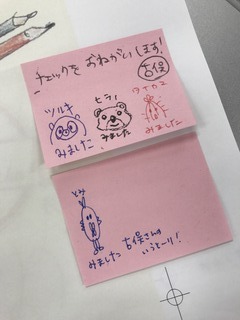 チェックを おねがいします!
古俣
ツルキ
みました
ヒラノ
みました
みました
とみ
みました 古俣さんの
いうとーり!